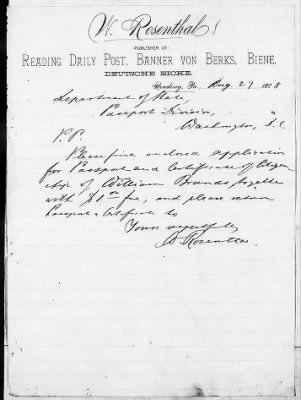 W. Rosenthal,
PUBLISHER OF
READING DAILY POST, BANNER VON BERKS, BIENE,
DEUTSCHE EICHE.
Reading, Pa., Aug. 27 1888
Department of State,
Passport Division,
Washington, D.C.
Please find enclosed application
for Passport and Certificate of Citizen
ship of William Brands together
with $1 00 fee, and please return
Passport & Certificate to
Yours respectfully
W Rosenthal